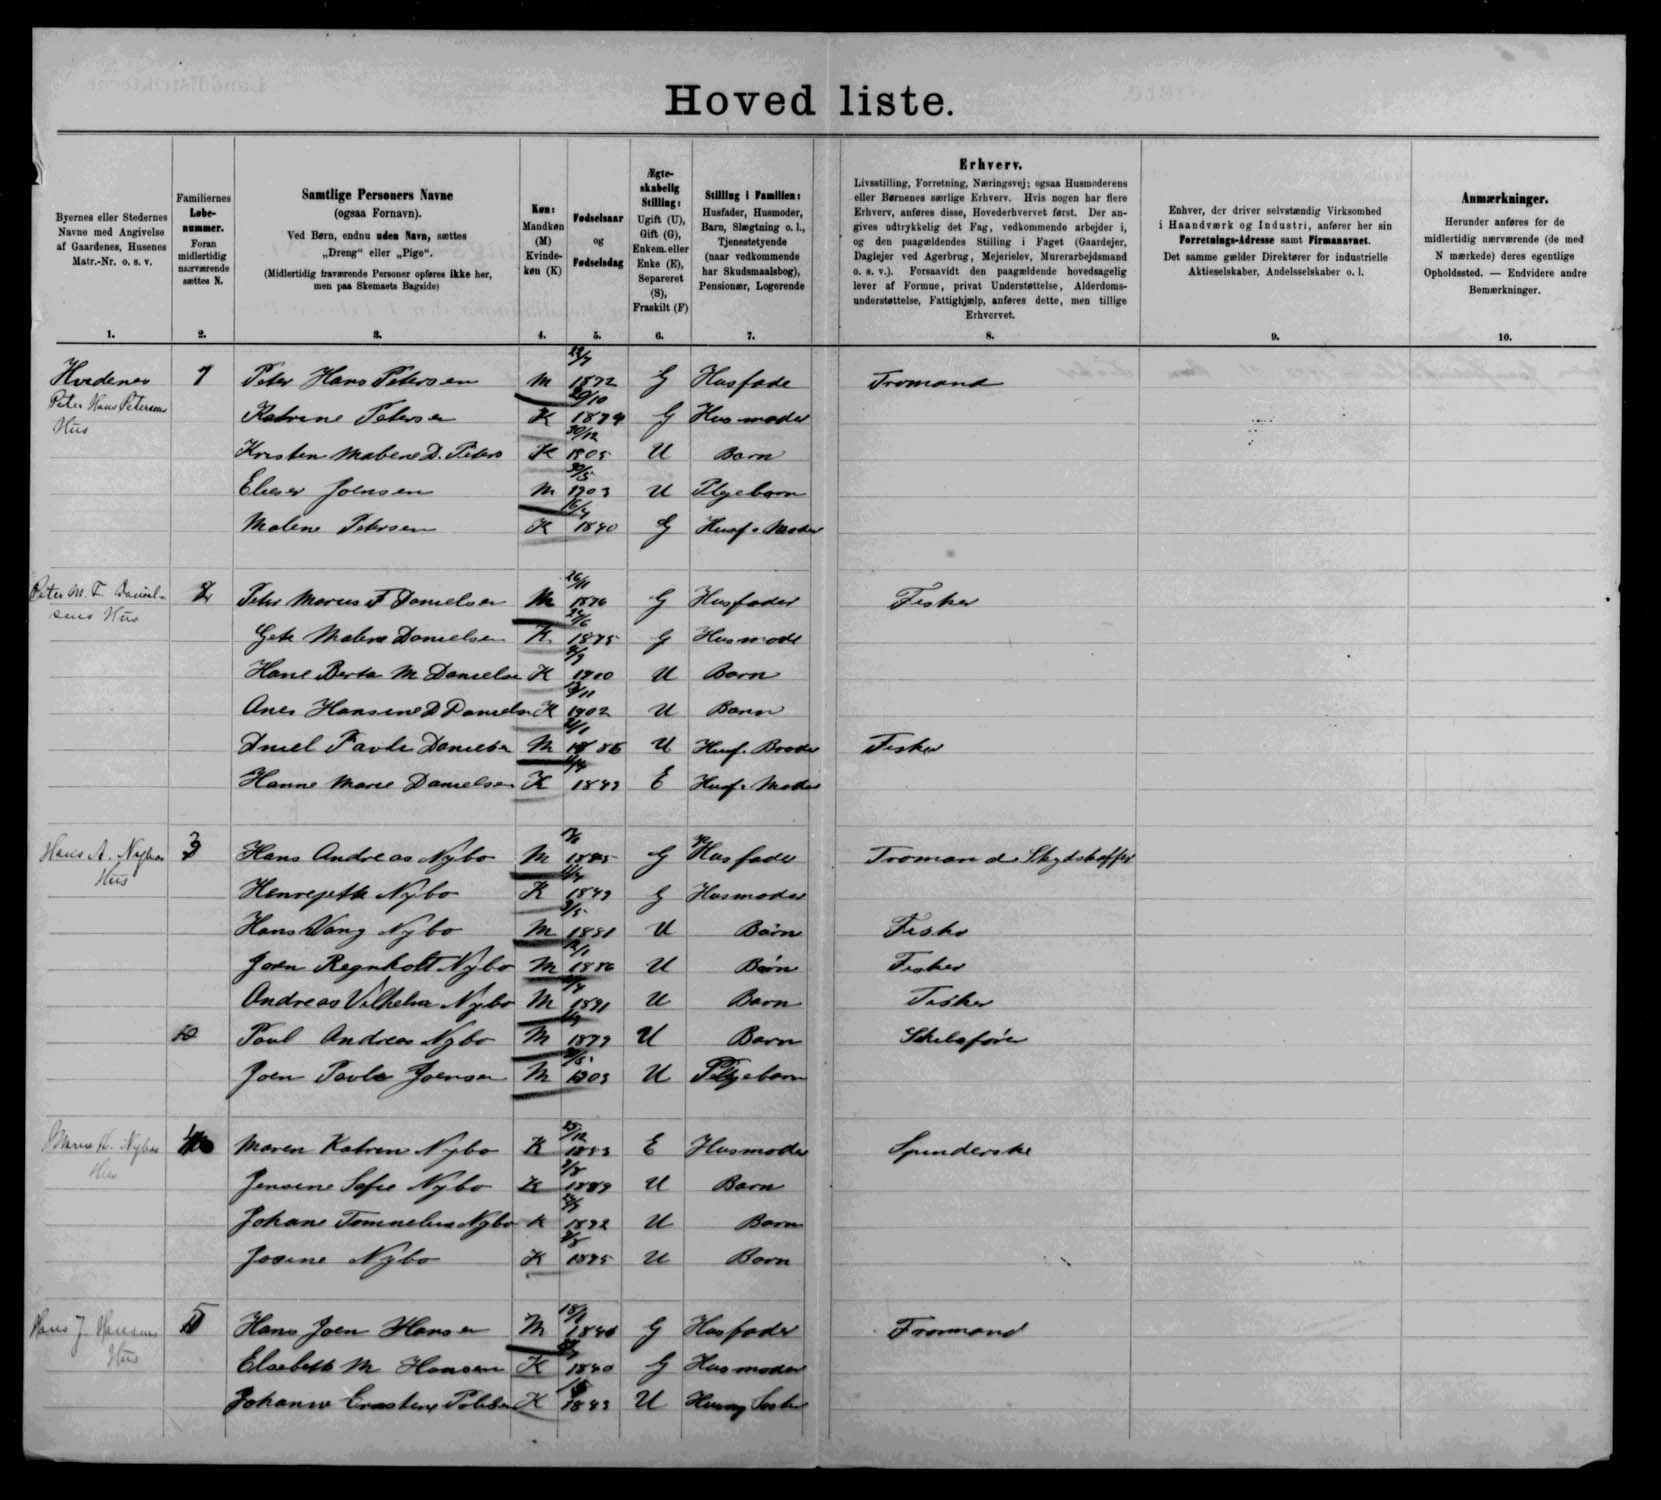 Hovedliste.
Byernes eller Stedernes Navne med Angivelse af Gaardenes, Husenes Matr.-Nr. o. s. v.
Familiernes Løbe-nummer. Foran midlertidig nærværende sættes N.
Samtlige Personers Navne
(ogsaa Fornavn).
Ved Børn, endnu uden Navn, sættes
„Dreng" eller „Pige".
(Midlertidig fraværende Personer opføres ikke her, men paa Skemaets Bagside)
Køn: Mandkøn (M) Kvinde-køn (K)
Fødselsaar og Fødselsdag
Ægte-skabelig Stilling: Ugift (U), Gift (G), Enkem. eller Enke (E), Separeret (S), Fraskilt (F)
Stilling i Familien: Husfader, Husmoder, Barn, Slægtning o. l., Tjenestetyende (naar vedkommende har Skudsmaalsbog), Pensionær, Logerende
Erhverv.
Livsstilling, Forretning, Næringsvej; ogsaa Husmoderens
eller Børnenes særlige Erhverv. Hvis nogen har flere
Erhverv, anføres disse, Hovederhvervet først. Der an-
gives udtrykkelig det Fag, vedkommende arbejder i,
og den paagældendes Stilling i Faget (Gaardejer,
Daglejer ved Agerbrug, Mejerielev, Murerarbejdsmand
o. s. v.). Forsaavidt den paagældende hovedsagelig
lever af Formue, privat Understøttelse, Alderdoms-
understøttelse, Fattighjælp, anføres dette, men tillige
Erhvervet.
Enhver, der driver selvstændig Virksomhed
i Haandværk og Industri, anfører her sin
Forretnings-Adresse samt Firmanavnet.
Det samme gælder Direktører for industrielle
Aktieselskaber, Andelsselskaber o. l.
Anmærkninger.
Herunder anføres for de
midlertidig nærværende (de med
N mærkede) deres egentlige
Opholdssted. — Endvidere andre
Bemærkninger.
1. 2. 3. 4. 5. 6. 7. 8. 9. 10.
Hvidenes 1 Peter Hans Petersen M 1872 G Husfade Tromand
Peter Hans Petersens
Hus
Katrine Petersen K 20/10 1874 G Husmoder
Kristen Malene D. Peters K 30/12 1905 U Barn
Elieser Joensen M 30/5 1903 U Plejebarn
Malene Petersen K 1840 G Husf. Moder
Peter M. F. Daniel-
sens Hus
2 Peter Marius F Danielsen M 26/11 1876 G Husfader Fisker
Malene Danielsen K 1875 G Husmode
Hane Berta M Danielse K 1900 U Barn
Anes Hansine D Danielse K 1902 U Barn
Dniel Pavli Danielsen M 1886 U Husf. Broder Fisker
Hanne Marie Danielsen K 1843 E Husf. Moder
Hans A. Nybos
Hus
3 Hans Andreas Nybo M 1845 G Husfader Tromand & Skydskaffer
Henrejette Nybo K 1849 G Husmoder
Hans Vang Nybo M 1881 U Barn Fisker
Joen Regnholt Nybo M 1886 U Barn Fisker
Andreas Vilhelm Nybo M 1891 U Barn Fisker
Poul Andreas Nybo M 1879 U Barn Skibsfører
Joen Pavle Joensen M 1903 U Plejebarn
Nybos
Hus
4 Maren Katrine Nybo K 25/12 1853 E Husmoder Spinderske
Jensine Sofie Nybo K 1889 U Barn
Johane Nybo K 1892 U Barn
Josine Nybo K 1895 U Barn
Hans J. Hansens
Hus
5 Hans Joen Hansen M 1840 G Husfader Tromand
Elsebeth M Hansen K 1840 G Husmoder
Johanne K 1843 U